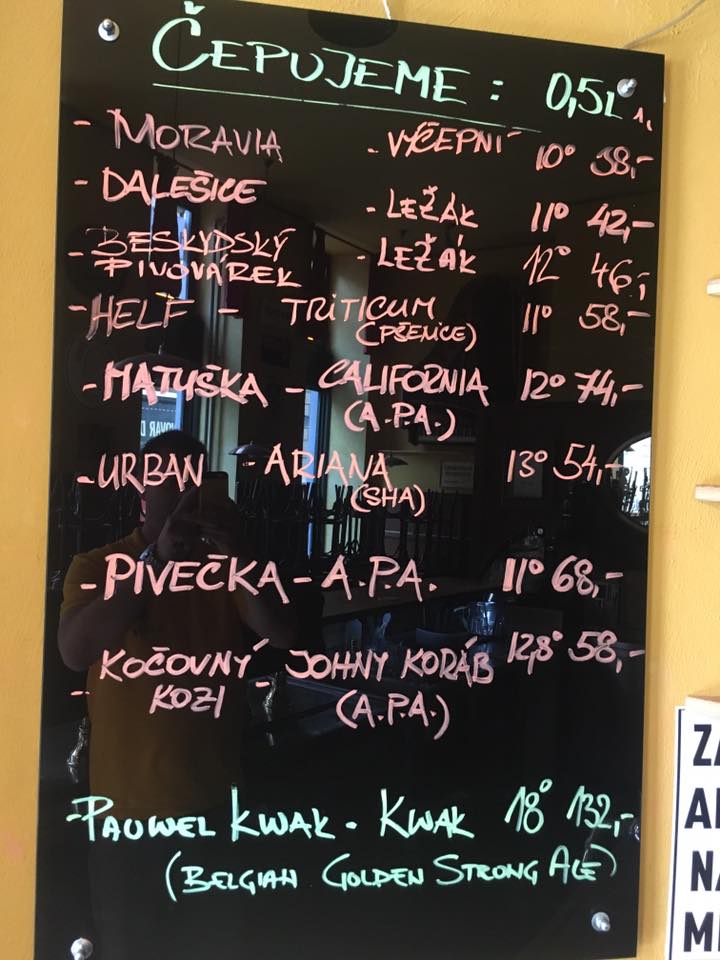 ČEPUJEME: 0,5L
- MORAVIA - VÝČEPNÍ 10° 38,-
- DALEŠICE - LEŽÁK 11° 42,-
- BESKYDSKÝ - LEŽÁK 12° 46,-
PIVOVÁREK
- HELF - TRITICUM 11° 58,-
(PŠENICE)
- MATUŠKA - CALIFORNIA 12° 74,-
(A.P.A.)
- URBAN - ARIANA 13° 54,-
(SHA)
- PIVEČKA - A.P.A. 11° 68,-
- KOČOVNÝ - JOHNY KORÁB 12,8° 58,-
KOZI (A.P.A.)
- PAUWEL KWAK - KWAK 18° 132,-
(BELGIAN GOLDEN STRONG ALE)
ZA
NA